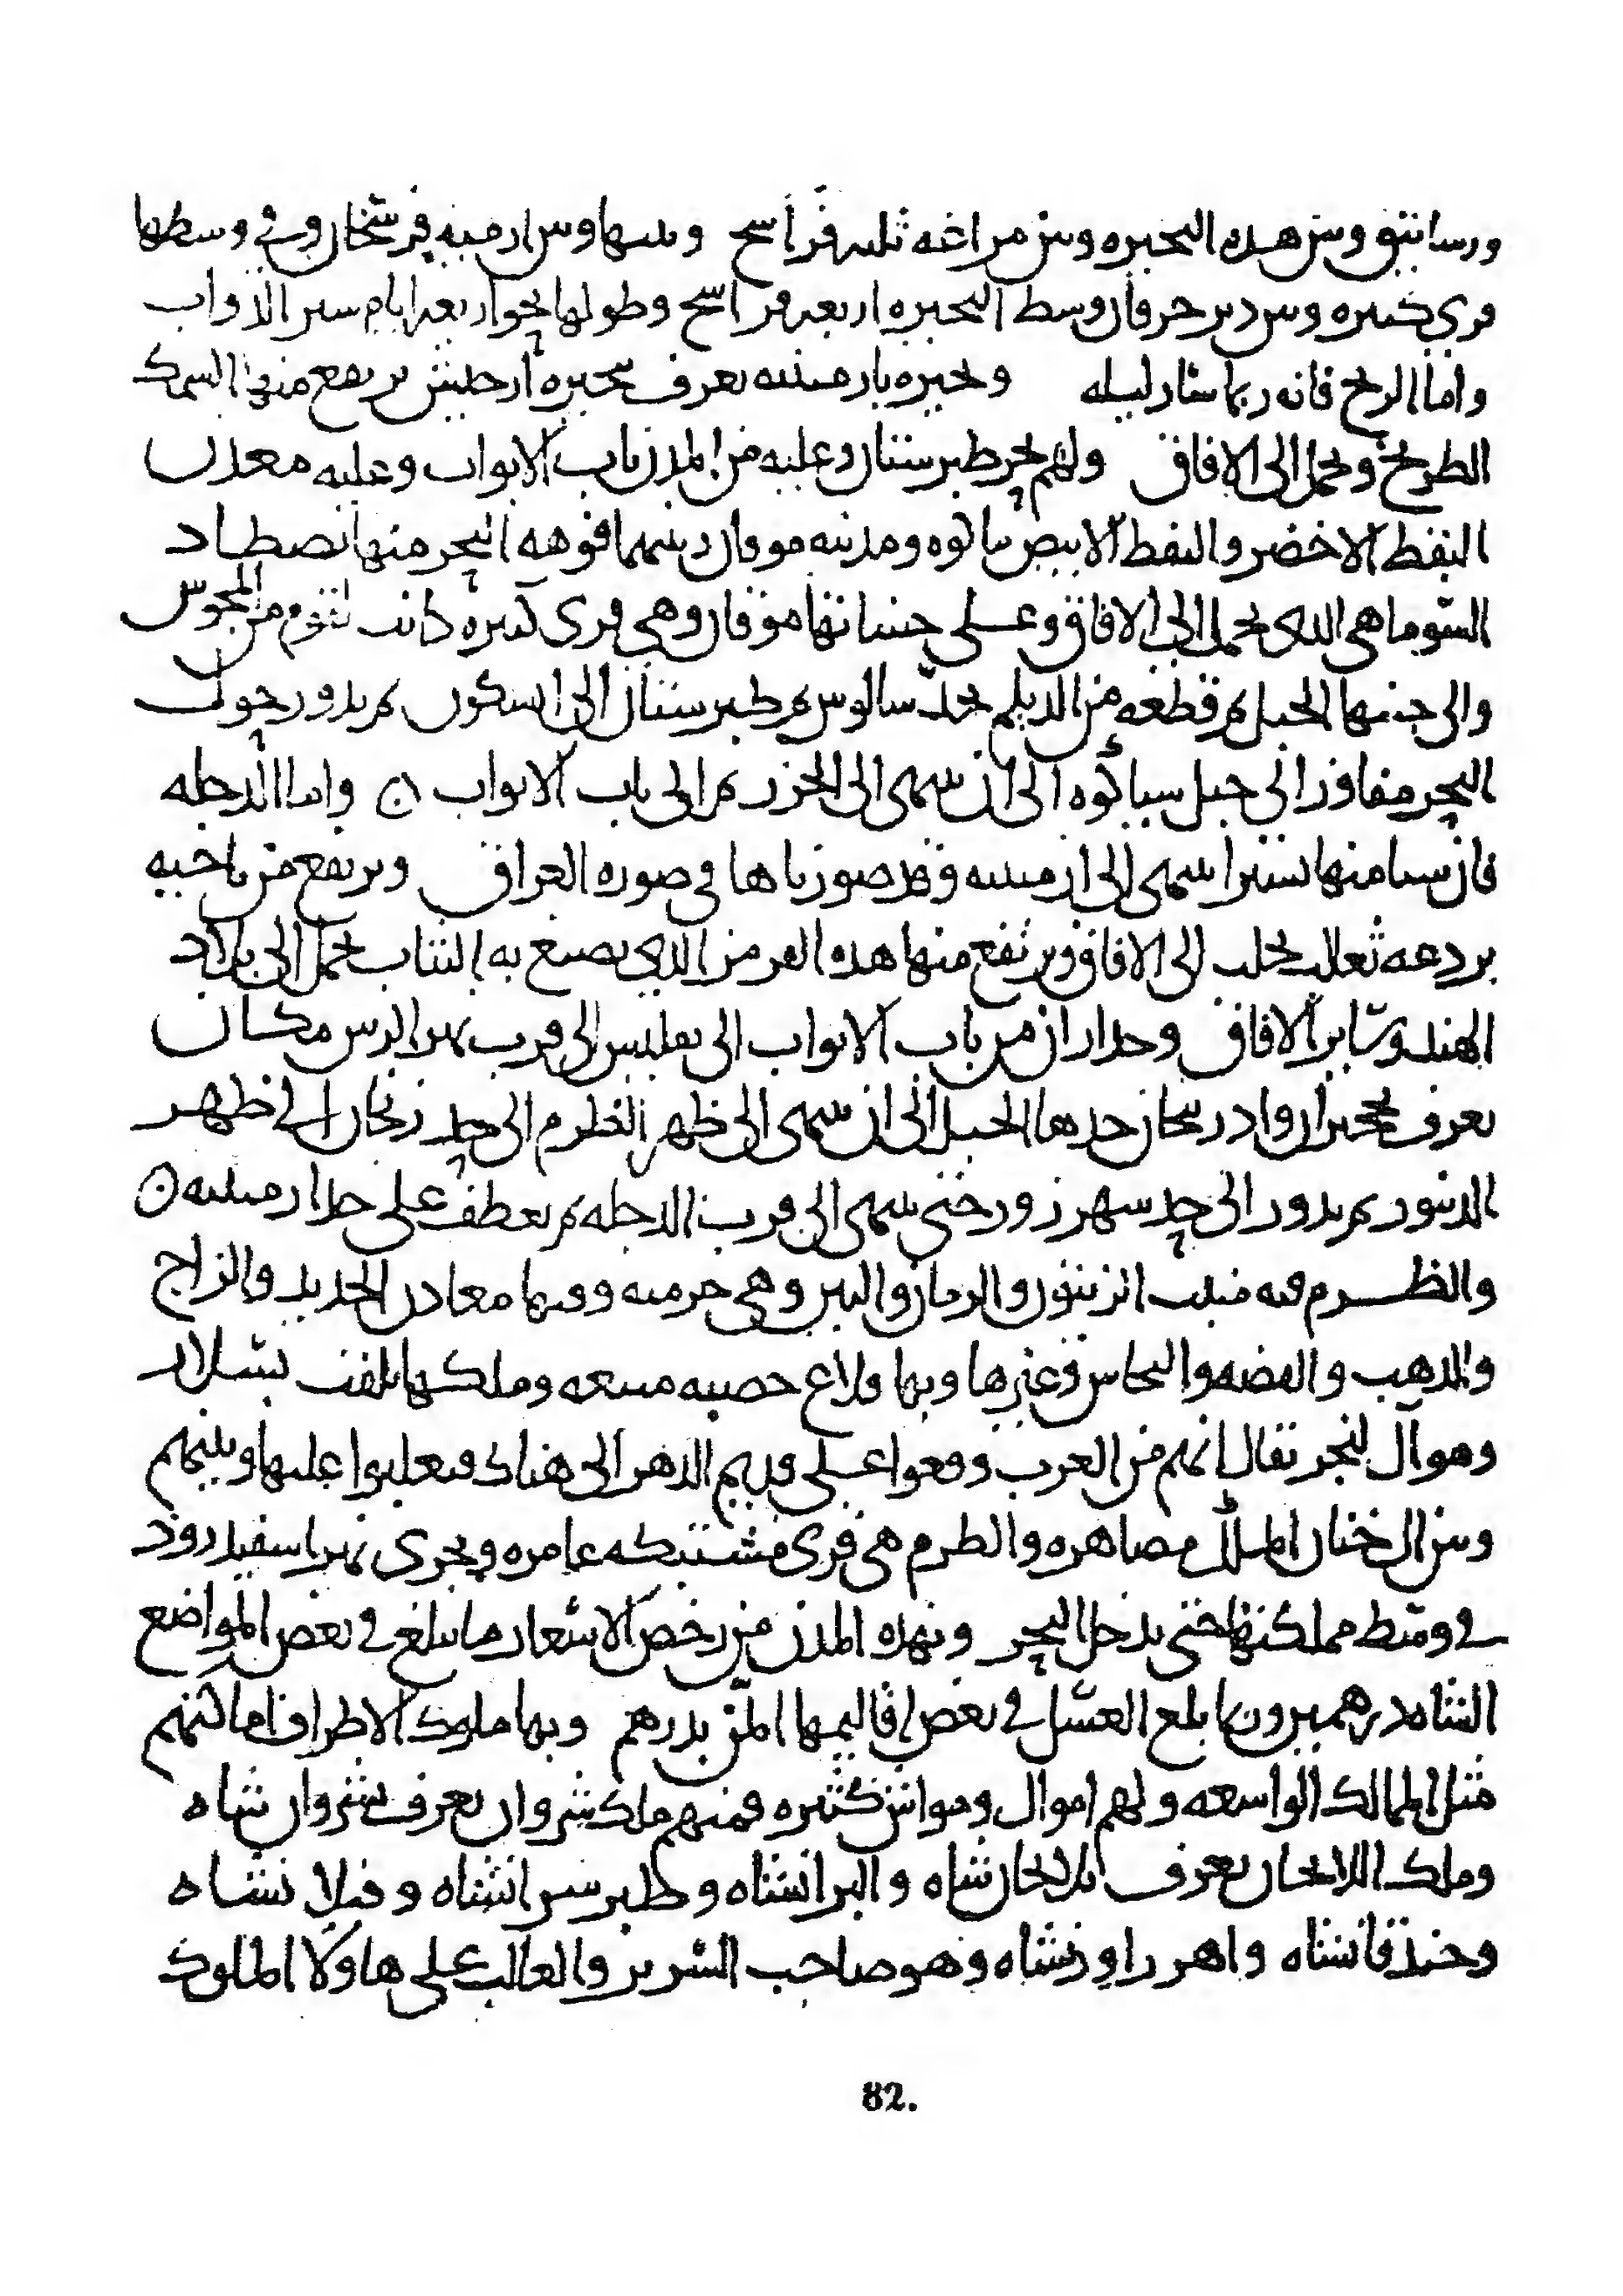 ورساتيق وبين هذه البحيره وبين مراغه ثلثه فراسخ وبينها وبين ارميه فرسخان وفي وسطها
قرى كثيره وبين دير خرقان وسط البحيره اربعه فراسخ وطولها نحو اربعه ايام سير الدواب
واما الريح فانه ربما سار ليله وبحيره بارمينيه تعرف ببحيره ارجيش يرتفع منها السمك
الطريخ ويحمل الى الافاق ولهم بحر طبرستان وعليه من المدن باب الابواب وعليه معدن
النفط الاخضر والنفط الابيض بباكوه ومدينه موقان وبينهما فوهه البحر منها يصطاد
الشوماهي الذي يحمل الى الافاق وعلى جنباتها موقان وهي قرى كثيره كانت لقوم من المجوس
والى جنبها الجبل ثم قطعه من الديلم بحد سالوس ثم طبرستان الى ابسكون ثم يدور حول
البحر مفاوز الى جبل سياكوه الى ان ينتهى الى الخزر ثم الى باب الابواب ن واما الدجله
فان شيا منها يسيرا ينتهى الى ارمينيه وقد صورناها في صوره العراق ويرتفع من ناحيه
بردعه ثعالب يجلب الى الافاق ويرتفع منها هذه القرمز الذي يصبغ به الثياب يحمل الى بلاد
الهند وساير الافاق وحد اران من باب الابواب الى تفليس الى قرب نهر الرس مكان
يعرف بحجيران واذربيجان حدها الجبل الى ان ينتهى الى ظهر الطرم الى حد زنجان الى ظهر
الدينور ثم يدور الى حد سهرزور حتى ينتهى الى قرب الدجله ثم يعطف على حد ارمينيه ن
والطرم فيه منبت الزيتون والرمان والتين وهي جرميه وفيها معادن الحديد والزاج
والذهب والفضه والنحاس وغيرها وبها قلاع حصينه منيعه وملكها يلقب بسلار
وهو آل لنجر يقال انهم من العرب وقعوا على قديم الدهر الى هناك فتغلبوا عليها وبينهم
وبين ال ختان الجيل مصاهره والطرم هي قرى مشتبكه عامره ويجري نهر اسفيد روذ
في وسط مملكتها حتى يدخل البحر وبهذه المدن من رخص الاسعار ما يبلغ في بعض المواضع
الشاه درهمين وربما بلغ العسل في بعض اقاليمها المن بدرهم وبها ملوك الاطراف مماليكهم
مثل الممالك الواسعه ولهم اموال ومواشي كثيره فمنهم ملك شروان يعرف بشروان شاه
وملك اللايجان يعرف بلايجان شاه والبرانشاه وطبرسرانشاه وفيلانشاه
وخندقانشاه وهو صاحب السرير والغالب على هاولا الملوك
82.